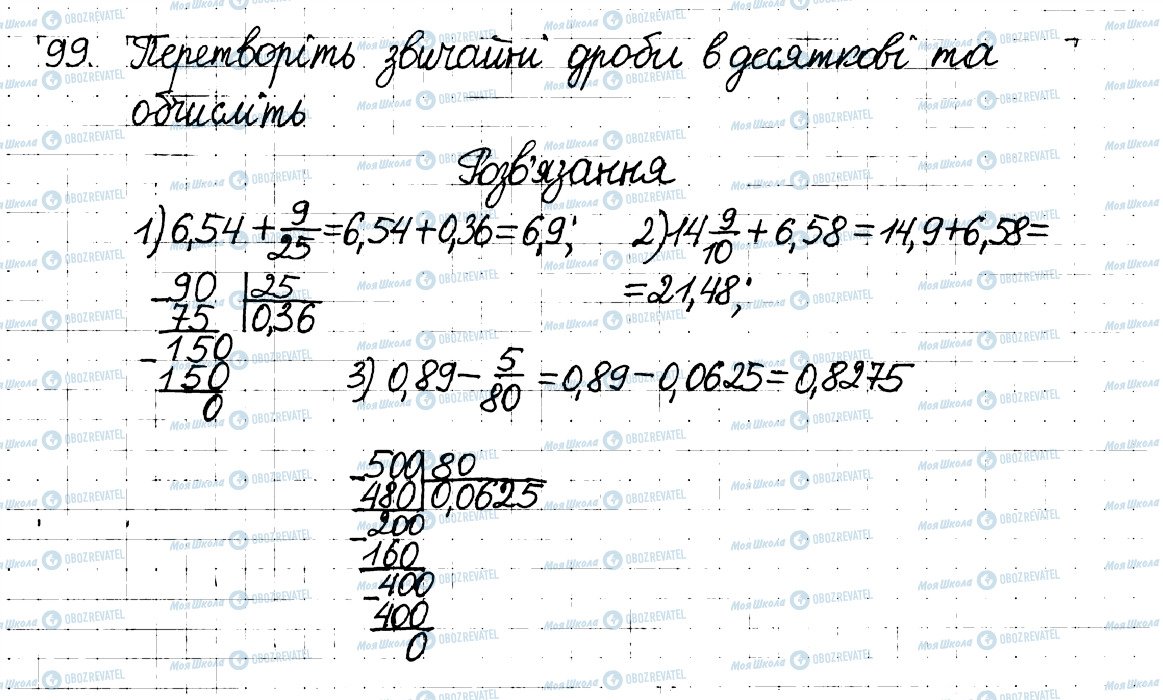 99. Перетворіть звичайні дроби в десяткові та
обчисліть
Розв'язання
1) 6,54 + 9/25 = 6,54 + 0,36 = 6,9;
2) 14 9/10 + 6,58 = 14,9 + 6,58 =
= 21,48;
- 90 | 25
75 | 0,36
- 150
150
0
3) 0,89 - 5/80 = 0,89 - 0,0625 = 0,8275
- 500 | 80
480 | 0,0625
- 200
160
- 400
400
0
Моя Школа OBOZREVATEL